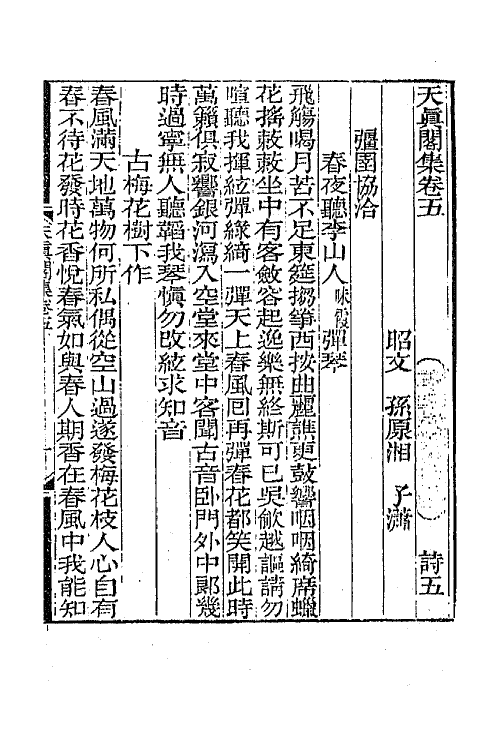 天眞閣集卷五　詩五
昭文　孫原湘　子瀟
彊圉協洽
春夜聽李山人味霞彈琴
飛觴喝月苦不足東筵搊箏西按曲麗譙更鼓響咽咽綺席蠟
花搖蔌蔌坐中有客斂容起逸樂無終斯可已吳歈越謳請勿
喧聽我揮絃彈綠綺一彈天上春風囘再彈春花都笑開此時
萬籟俱寂響銀河瀉入空堂來堂中客聞古音卧門外中郞幾
時過寧無人聽韜我琴愼勿改絃求知音
古梅花樹下作
春風滿天地萬物何所私偶從空山過遂發梅花枝人心自有
春不待花發時花香悅春氣如與春人期香在春風中我能知
天眞閣集卷五　一